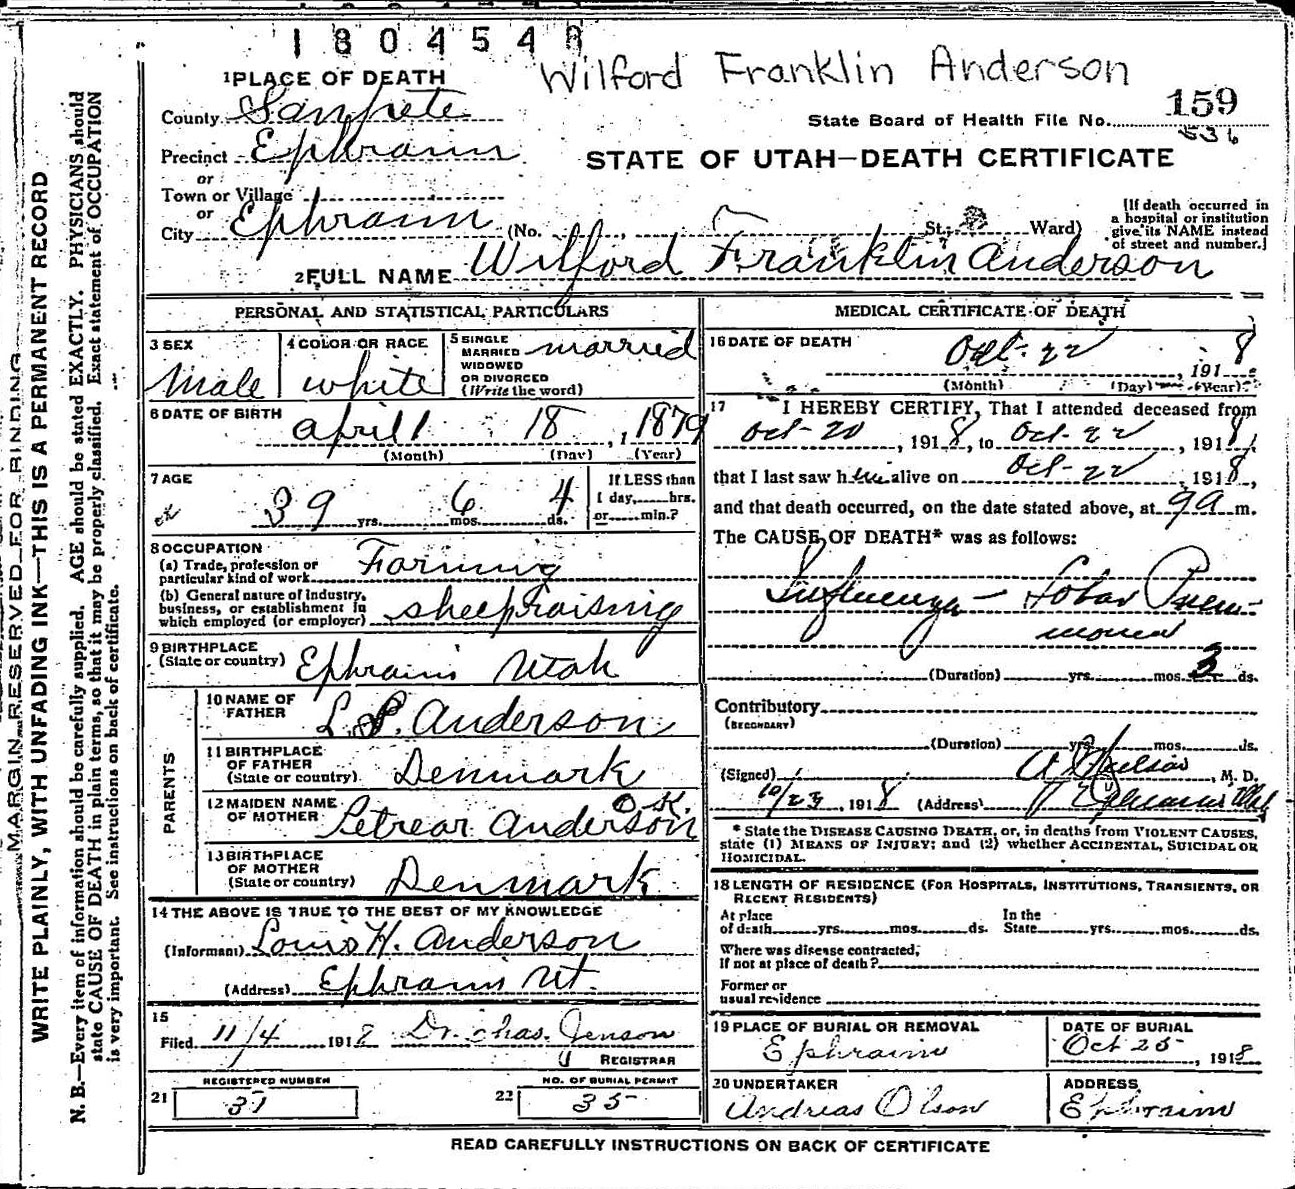 1804548
Wilford Franklin Anderson
1 PLACE OF DEATH
County Sanpete
159
State Board of Health File No.
536
Precinct Ephraim
STATE OF UTAH—DEATH CERTIFICATE
or
Town or Village
or
City Ephraim (No. St., Ward)
[If death occurred in a hospital or institution give its NAME instead of street and number.]
2 FULL NAME Wilford Franklin Anderson
PERSONAL AND STATISTICAL PARTICULARS
3 SEX
Male
4 COLOR OR RACE
white
5 SINGLE
MARRIED
WIDOWED
OR DIVORCED
(Write the word)
married
6 DATE OF BIRTH
April 18, 1879
(Month) (Day) (Year)
7 AGE
39 yrs. 6 mos. 4 ds.
If LESS than
1 day, hrs.
or min.?
8 OCCUPATION
(a) Trade, profession or
particular kind of work Farming
(b) General nature of industry,
business, or establishment in
which employed (or employer) sheepraising
9 BIRTHPLACE
(State or country) Ephraim Utah
PARENTS
10 NAME OF
FATHER L. P. Anderson
11 BIRTHPLACE
OF FATHER
(State or country) Denmark
12 MAIDEN NAME
OF MOTHER Petrear Anderson
O.K.
13 BIRTHPLACE
OF MOTHER
(State or country) Denmark
14 THE ABOVE IS TRUE TO THE BEST OF MY KNOWLEDGE
(Informant) Louis H. Anderson
(Address) Ephraim Ut.
15
Filed 11/4 1918 Dr. Chas. Jenson
REGISTRAR
REGISTERED NUMBER
21 37
NO. OF BURIAL PERMIT
22 35
MEDICAL CERTIFICATE OF DEATH
16 DATE OF DEATH
Oct. 22, 1918
(Month) (Day) (Year)
17 I HEREBY CERTIFY, That I attended deceased from
Oct-20, 1918, to Oct-22, 1918,
that I last saw him alive on Oct-22, 1918,
and that death occurred, on the date stated above, at 9 a m.
The CAUSE OF DEATH* was as follows:
Influenza — Lobar Pneu-
monia
(Duration) yrs. mos. 3 ds.
Contributory
(SECONDARY)
(Duration) yrs. mos. ds.
(Signed) Nielson, M. D.
10/23, 1918 (Address) Ephraim Utah
* State the DISEASE CAUSING DEATH, or, in deaths from VIOLENT CAUSES,
state (1) MEANS OF INJURY; and (2) whether ACCIDENTAL, SUICIDAL OR
HOMICIDAL.
18 LENGTH OF RESIDENCE (FOR HOSPITALS, INSTITUTIONS, TRANSIENTS, OR
RECENT RESIDENTS)
At place
of death yrs. mos. ds.
In the
State yrs. mos. ds.
Where was disease contracted,
If not at place of death?
Former or
usual residence
19 PLACE OF BURIAL OR REMOVAL
Ephraim
DATE OF BURIAL
Oct 25, 1918
20 UNDERTAKER
Andreas Olson
ADDRESS
Ephraim
READ CAREFULLY INSTRUCTIONS ON BACK OF CERTIFICATE
MARGIN RESERVED FOR BINDING
WRITE PLAINLY, WITH UNFADING INK—THIS IS A PERMANENT RECORD
N. B.—Every item of information should be carefully supplied. AGE should be stated EXACTLY. PHYSICIANS should
state CAUSE OF DEATH in plain terms, so that it may be properly classified. Exact statement of OCCUPATION
is very important. See instructions on back of certificate.